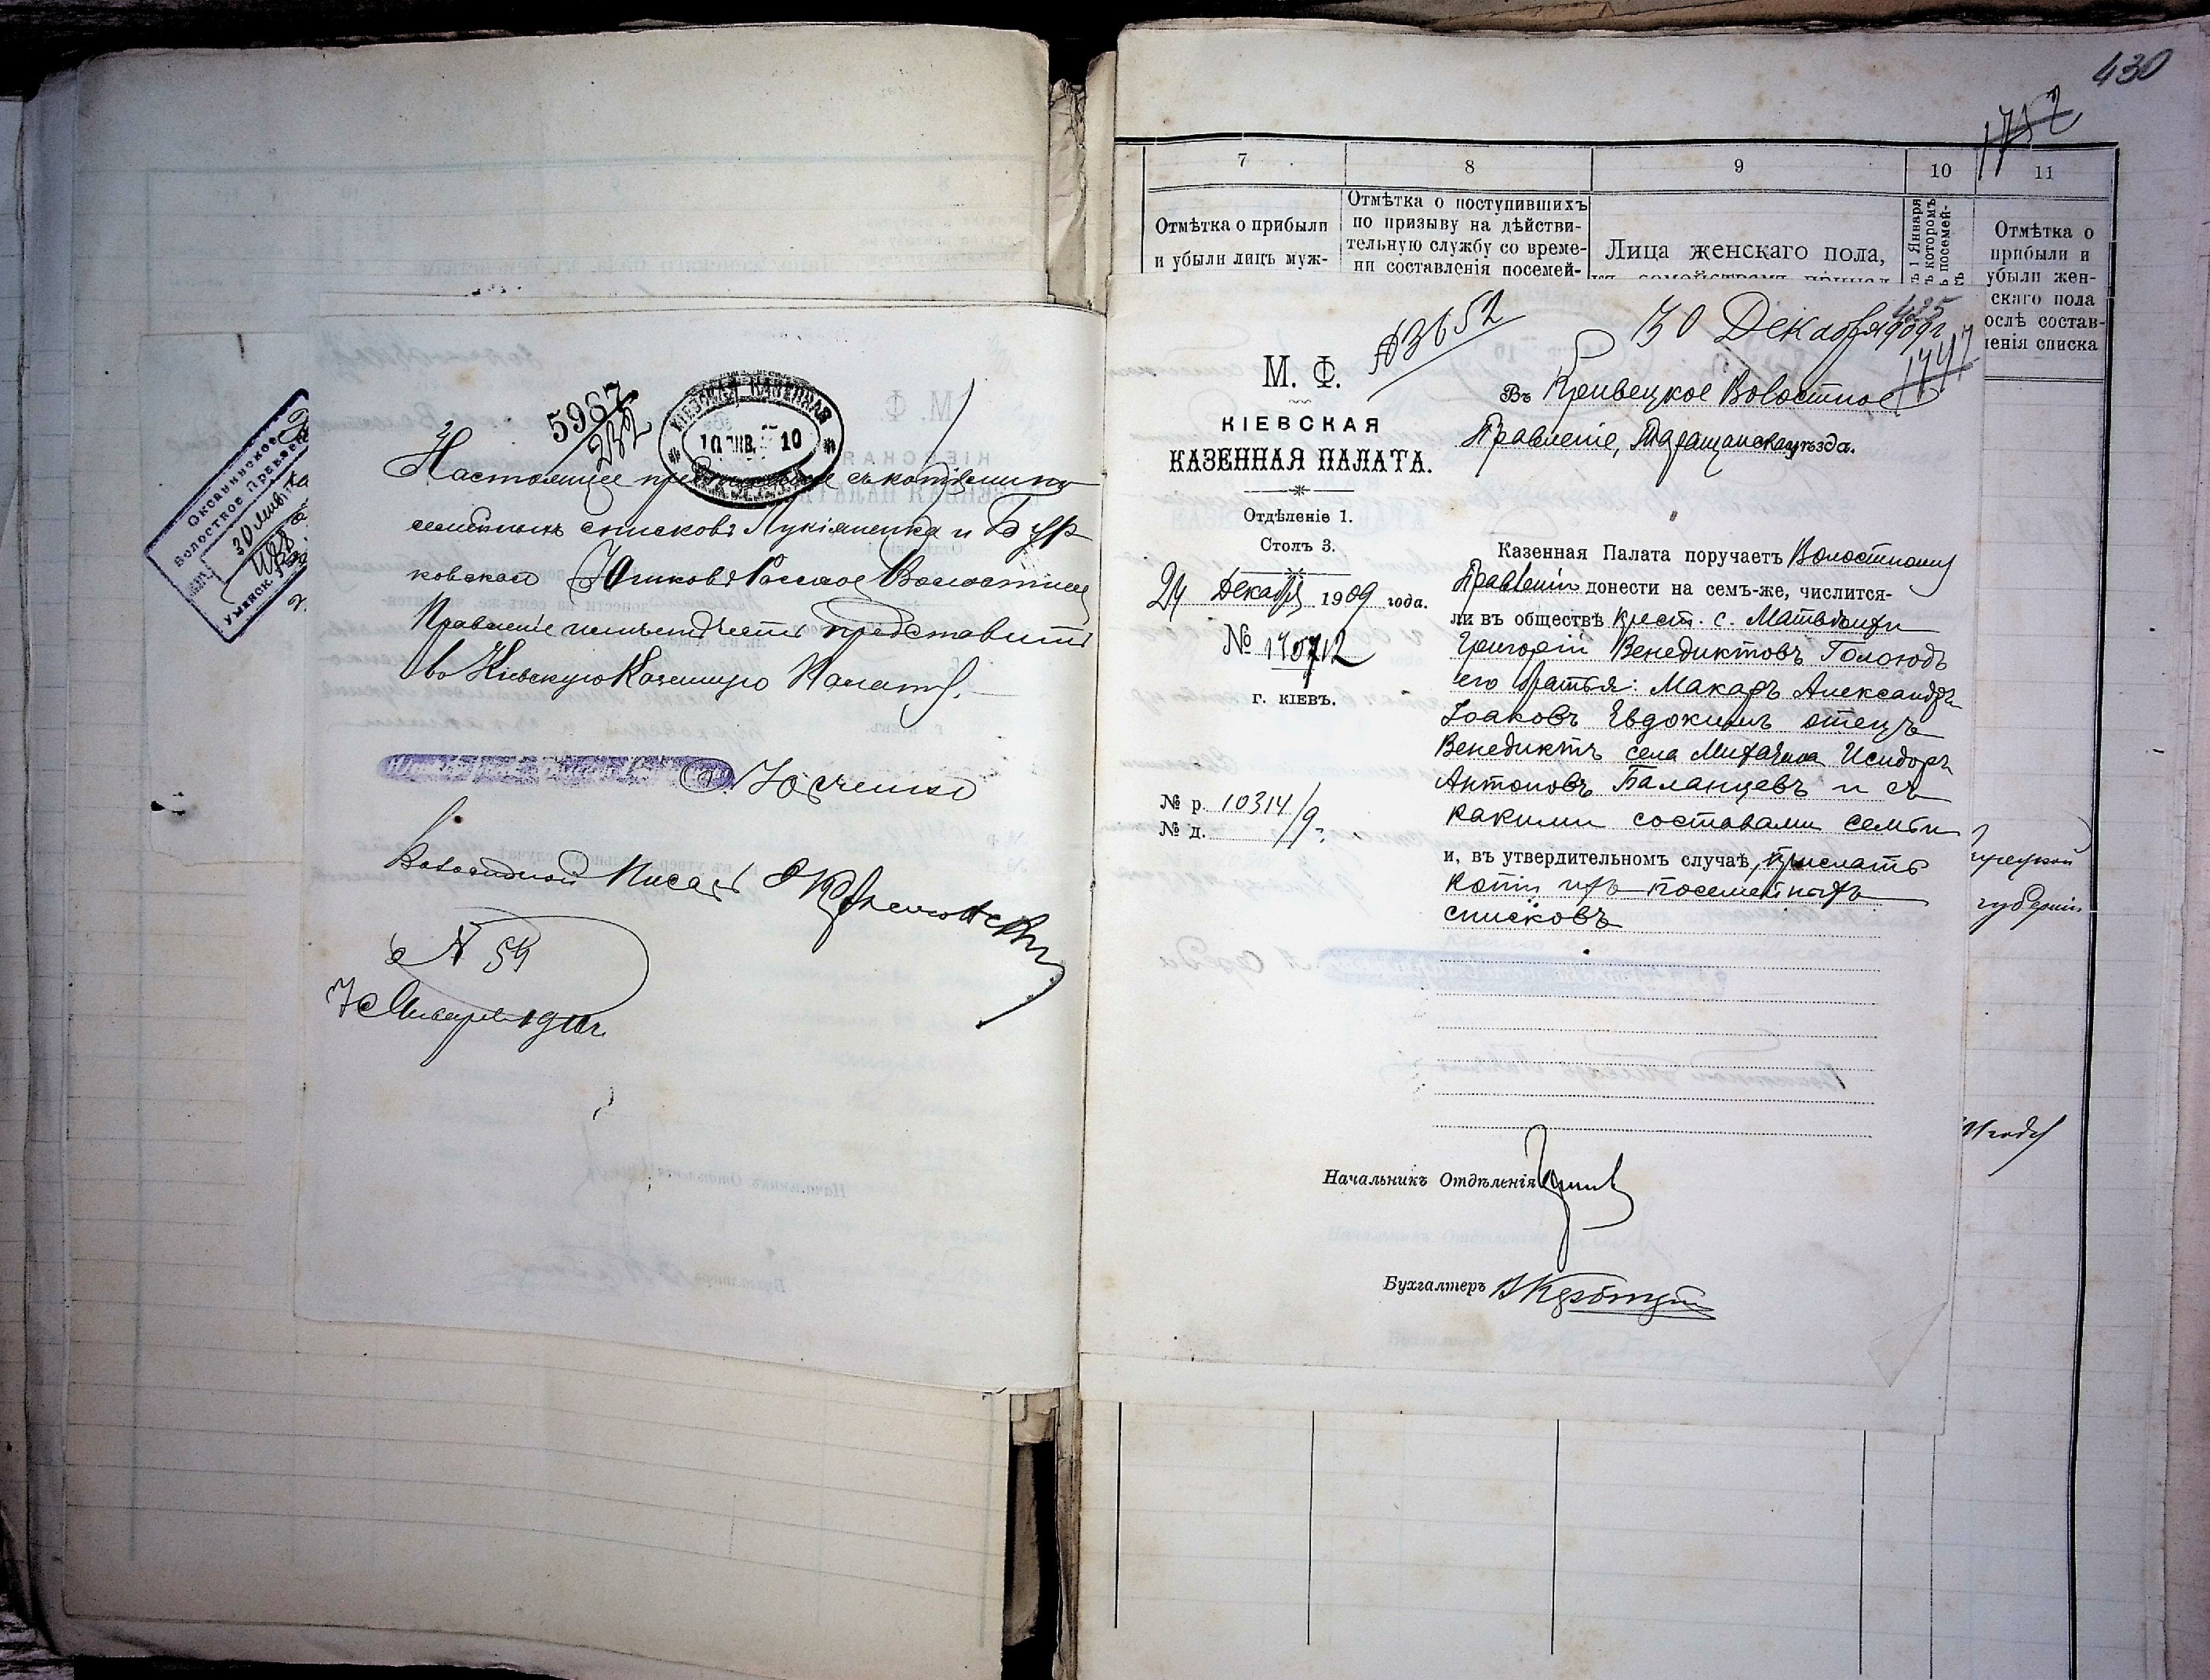 5967
232
КІЕВСКАЯ КАЗЕННАЯ
10 ЯНВ. 10
Настоящее съ копіями
семейныхъ списковъ Лукіяненка и Бур
ковскаго Юшково-Рогское Волостное
Правленіе имѣетъ честь представить
въ Кіевскую Казенную Палату.
Волостной Писарь
№ 59
7 Января 1910 г.
Волостное Правленіе
30
УМАНСК.
430
7
8
9
10
11
Отмѣтка о прибыли
и убыли лицъ муж-
Отмѣтка о поступившихъ
по призыву на дѣйстви-
тельную службу со време-
ни составленія посемей-
Лица женскаго пола,
1 Января
которомъ
посемей-
Отмѣтка о
прибыли и
убыли жен-
скаго пола
ослѣ состав-
ленія списка
№ 3652
30 Декабря 1909 г.
425
1747
М. Ф.
КІЕВСКАЯ
КАЗЕННАЯ ПАЛАТА.
Отдѣленіе 1.
Столъ 3.
24 Декабря 1909 года.
№ 140712
г. КІЕВЪ.
№ р. 10314/9 г.
№ д.
Въ Кривецкое Волостное
Правленіе, Таращанскаго уѣзда.
Казенная Палата поручаетъ Волостному
Правленію донести на семъ-же, числится-
ли въ обществѣ крест. с. Матвѣихи
Григорій Венедиктовъ Голоюдъ
его братья: Макаръ Александръ
Іоаковъ Евдокимъ отецъ
Венедиктъ села Михачина Исидоръ
Антоновъ Баланцевъ и съ
какими составами семьи
и, въ утвердительномъ случаѣ, прислать
копіи ихъ посемейныхъ
списковъ
губерніи
Начальникъ Отдѣленія
Бухгалтеръ